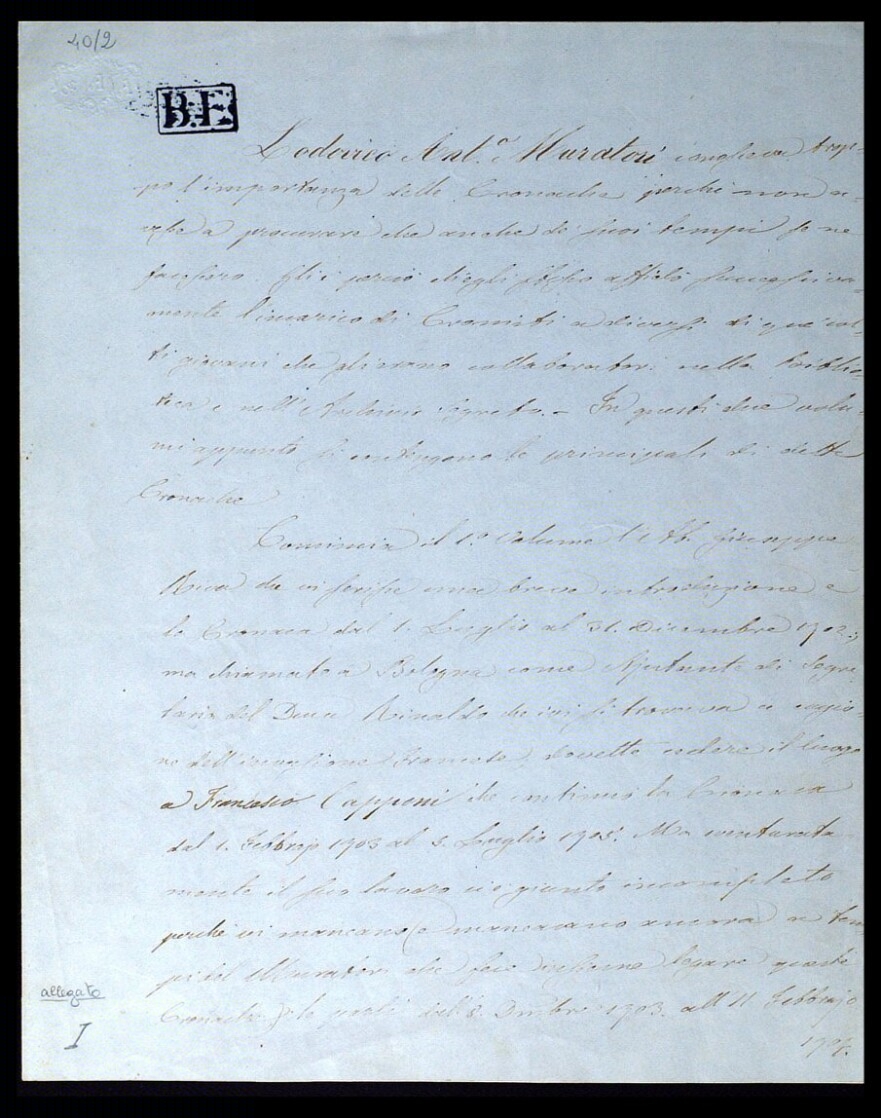 40/2
B.E
Lodovico Ant.º Muratori conosceva trop-
po l'importanza delle Cronache perché non a-
a procurare che anche de' suoi tempi se ne
facessero. perciò ch'egli stesso affidò successiva-
mente l'incarico di Cronisti a diversi di que' col-
ti giovani che gli erano collaboratori nella Biblio-
teca e nell'Archivio segreto. - In questi due volu-
mi appunto si contengono le principali di dette
Cronache
Comincia il 1.º Volume l'Ab. Giuseppe
Riva che vi scrisse una breve introduzione e
la Cronaca dal 1. Luglio al 31. Dicembre 1702.;
ma chiamato a Bologna come Ajutante di Segre
taria del Duca Rinaldo che ivi si trovava a cagio-
ne dell'invasione Francese, dovette cedere il luogo
a Francesco Capponi che continuò la Cronaca
dal 1. Febbrajo 1703 al 3. Luglio 1705. Ma sventurata
mente il suo lavoro ci è giunto incompleto
perché vi mancano (e mancavano ancora a tem
pi del Muratori che fece insieme legare queste
Cronache) le parti dell'8. Ombre 1703. all'11 Febbrajo
170
allegato
I